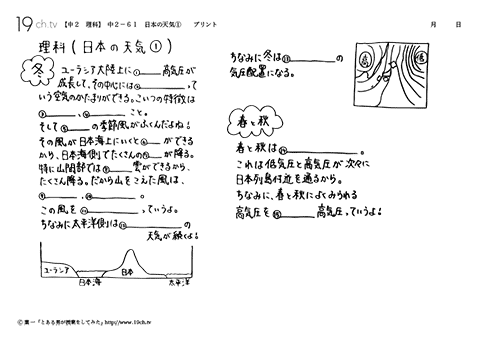 19ch.tv 【中2 理科】 中2-61 日本の天気① プリント 月 日
理科(日本の天気①)
冬 ユーラシア大陸上に①____高気圧が
成長して、その中心には②______,って
いう空気のかたまりができる。こいつの特徴は
③______、④______こと。
そして⑤____の季節風がふくんだよね!
その風が日本海上にいくと⑥____ができる
から、日本海側でたくさんの⑦____が降る。
特に山間部では⑧____雲ができるから、
たくさん降る。だから山をこえた風は、
⑨______、⑩______。
この風を⑪________っていうよ。
ちなみに太平洋側は⑫________の
天気が続くよ!
ユーラシア 日本
日本海 太平洋
ちなみに冬は⑬________の
気圧配置になる。
高 低
春と秋
春と秋は⑭____________。
これは低気圧と高気圧が次々に
日本列島付近を通るから。
ちなみに、春と秋によくみられる
高気圧を⑮______高気圧っていうよ!
©葉一「とある男が授業をしてみた」http://www.19ch.tv